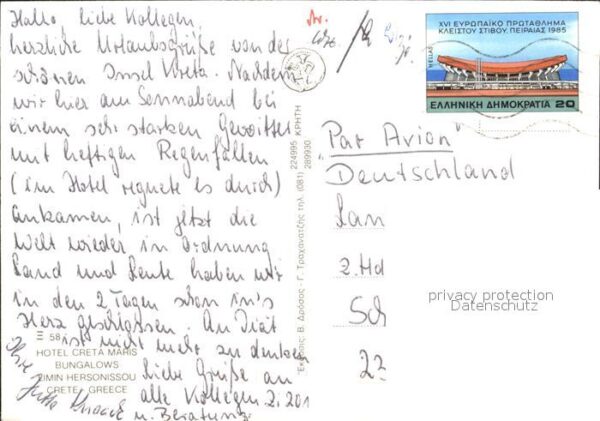 Hallo liebe Kollegen,
herzliche Urlaubsgrüße von der
schönen Insel Kreta. Nachdem
wir hier am Sonnabend bei
einem sehr starken Gewitter
mit heftigen Regenfällen
(im Hotel regnete es durch)
ankamen, ist jetzt die
Welt wieder in Ordnung
Land und Leute haben wir
in den 2 Tagen schon in's
Herz geschlossen. An Diät
ist nicht mehr zu denken
Liebe Grüße an
alle Kollegen Z. 201
u. Beratung
Ihre
Jutta
58
HOTEL CRETA MARIS
BUNGALOWS
LIMIN HERSONISSOU
CRETE GREECE
Εκδόσεις: Β. Δρόσος - Γ. Τραχανατζής τηλ. (081) 224995 ΚΡΗΤΗ
289930
XVI ΕΥΡΩΠΑΪΚΟ ΠΡΩΤΑΘΛΗΜΑ
ΚΛΕΙΣΤΟΥ ΣΤΙΒΟΥ, ΠΕΙΡΑΙΑΣ 1985
HELLAS
ΕΛΛΗΝΙΚΗ ΔΗΜΟΚΡΑΤΙΑ 20
"Par Avion"
Deutschland
Lan
z. Hd
Sch
22
privacy protection
Datenschutz